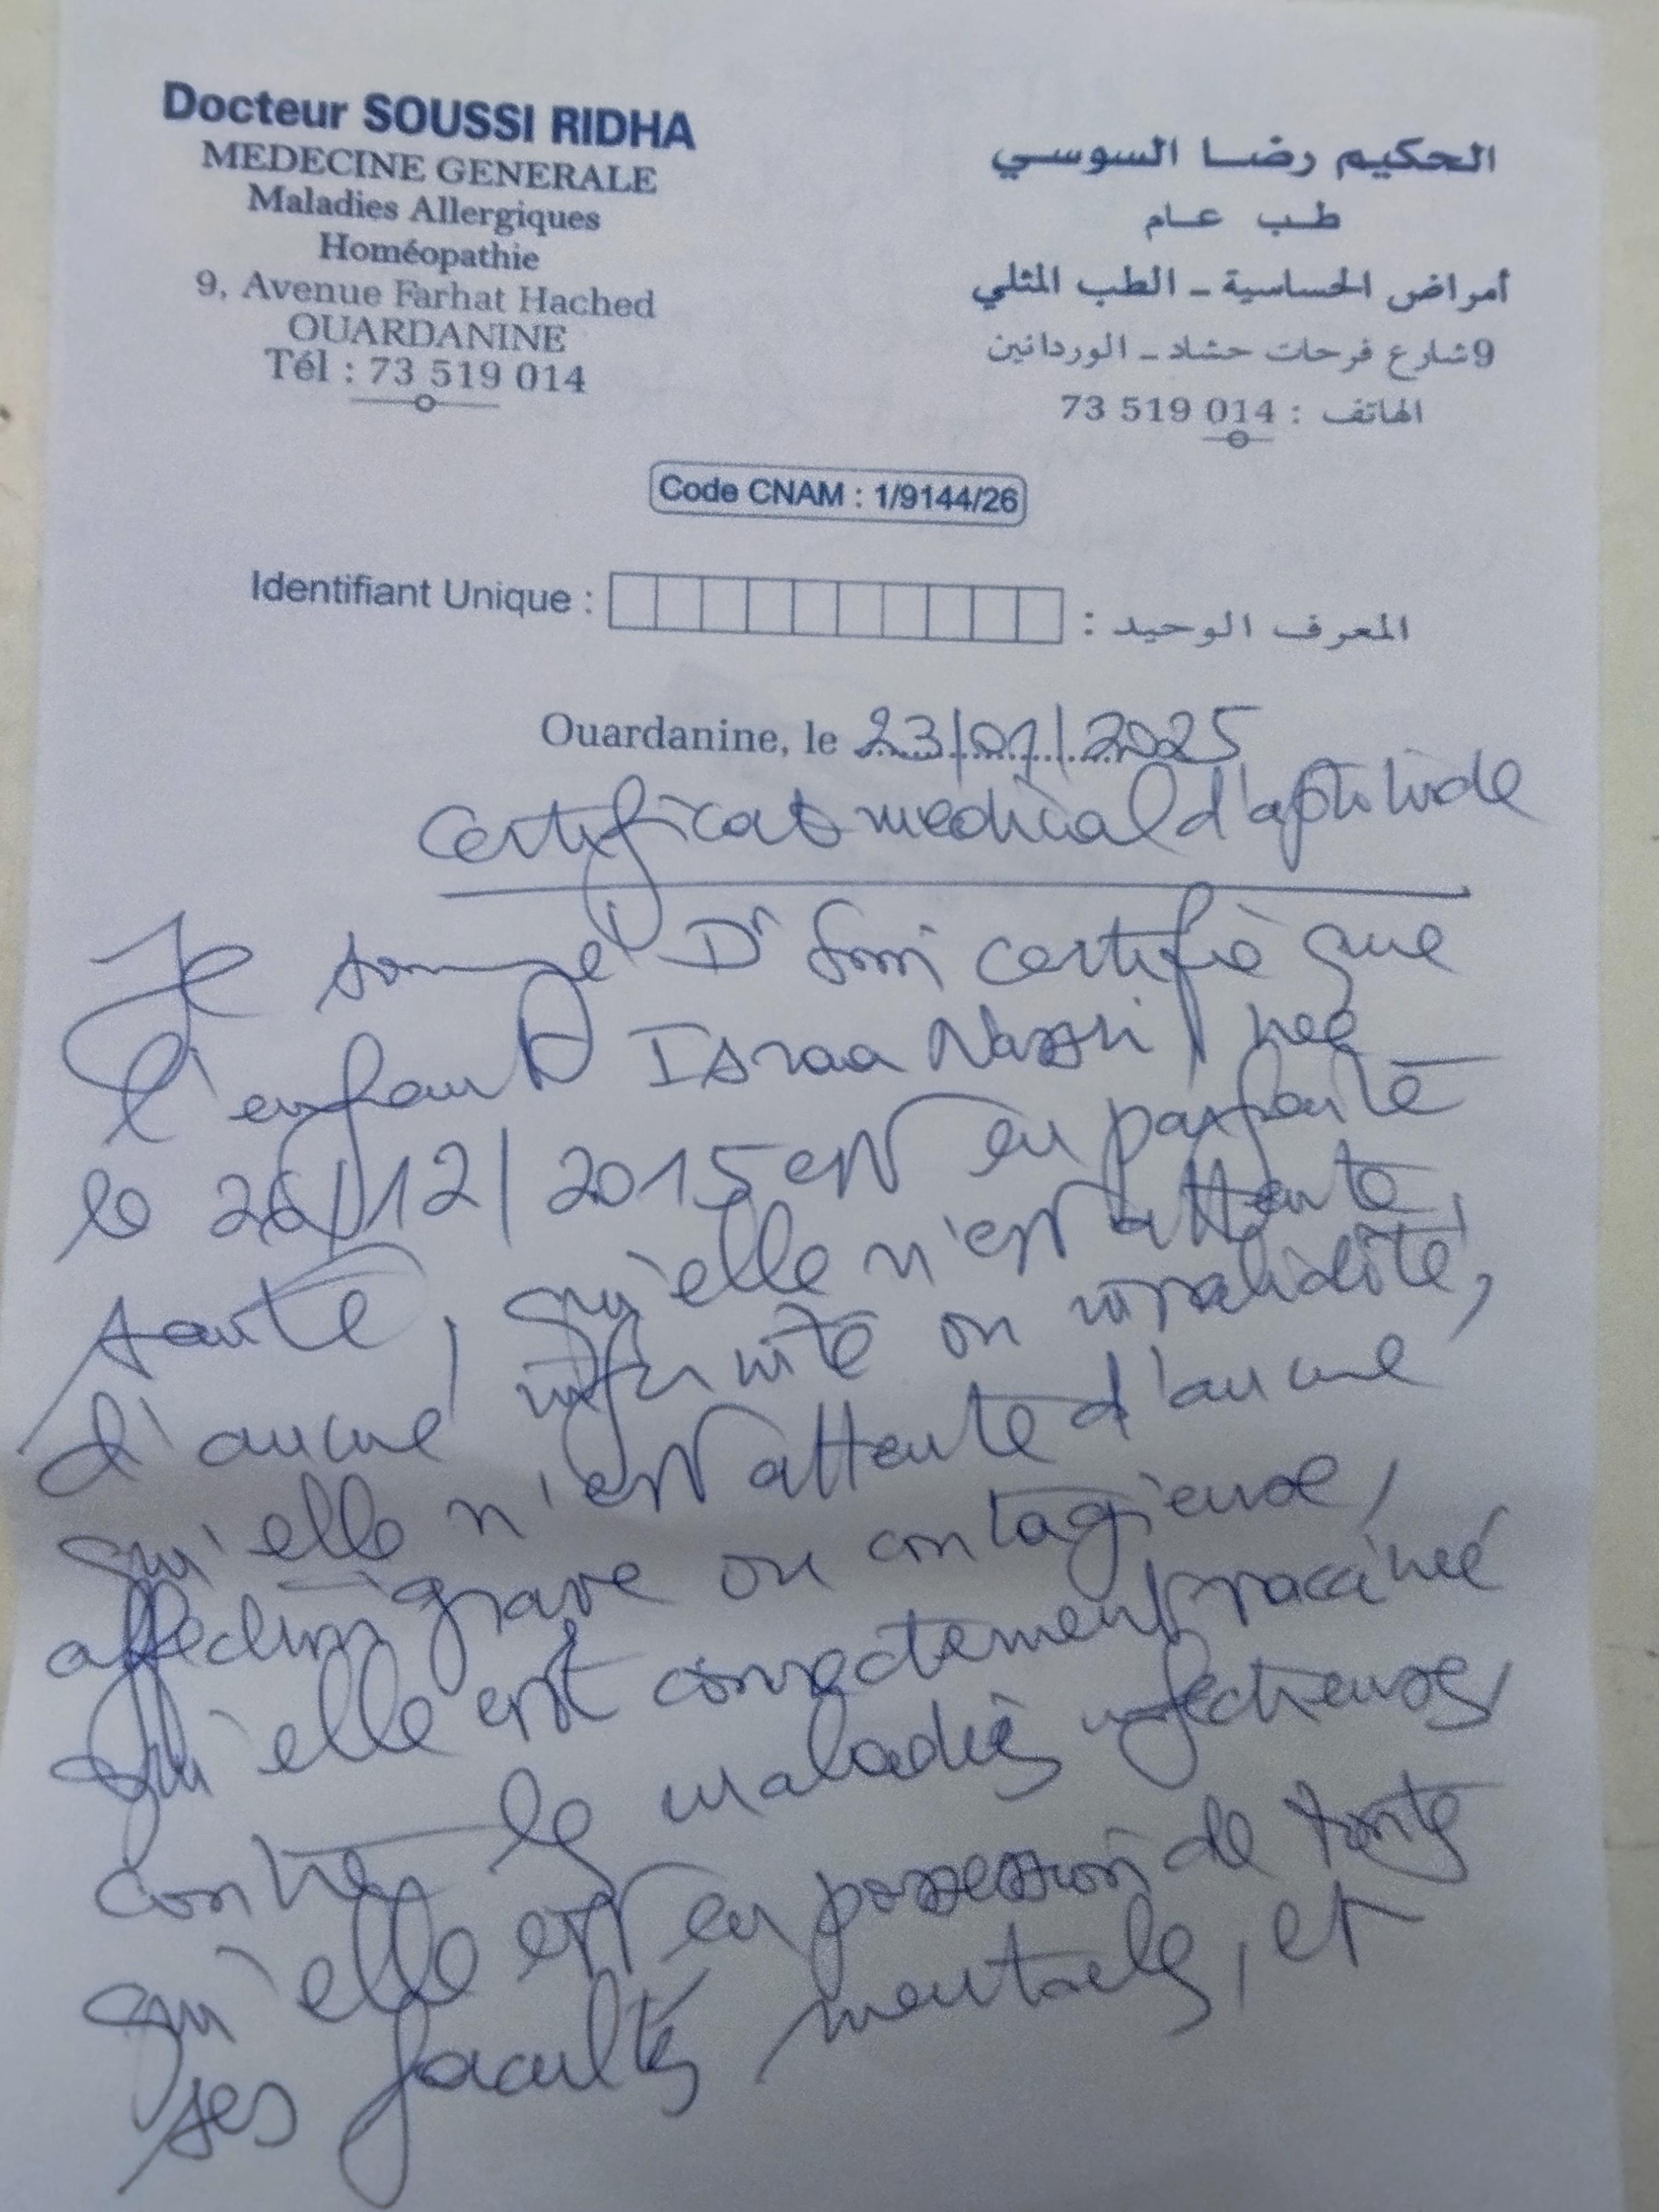 Docteur SOUSSI RIDHA
MEDECINE GENERALE
Maladies Allergiques
Homéopathie
9, Avenue Farhat Hached
OUARDANINE
Tél : 73 519 014
الحكيم رضا السوسي
طب عام
أمراض الحساسية - الطب المثلي
9 شارع فرحات حشاد - الوردانين
الهاتف : 73 519 014
Code CNAM : 1/9144/26
Identifiant Unique : المعرف الوحيد :
Ouardanine, le 23/01/2025
Certificat médical d'aptitude
Je Dr certifie que
l'enfant Israa née
le 26/12/2015 est en parfaite
santé, qu'elle n'est attente
d'aucune infirmité ou invalidité,
qu'elle n'est attente d'aucune
affection grave ou contagieuse,
qu'elle est correctement vacciné
contre les maladies infectieuses,
qu'elle est en possession de toutes
ses facultés mentales, et